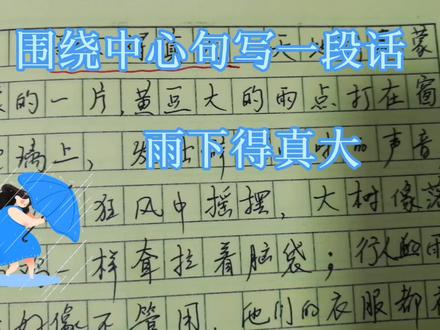 围绕中心句写一段话
蒙
的一片,黄豆大的雨点打在窗
雨下得真大
璃上,声音
狂风中摇摆,大树像落
一样耷拉着脑袋;行人的雨
好像不管用,他们的衣服都